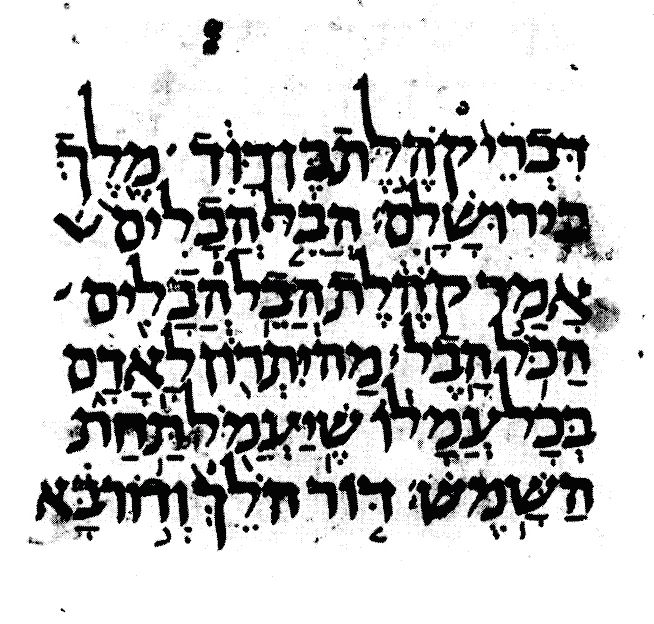 דִּבְרֵי קֹהֶלֶת בֶּן דָּוִד מֶלֶךְ
בִּירוּשָׁלִָם הֲבֵל הֲבָלִים
אָמַר קֹהֶלֶת הֲבֵל הֲבָלִים
הַכֹּל הָבֶל מַה יִּתְרוֹן לָאָדָם
בְּכָל עֲמָלוֹ שֶׁיַּעֲמֹל תַּחַת
הַשָּׁמֶשׁ דּוֹר הֹלֵךְ וְדוֹר בָּא